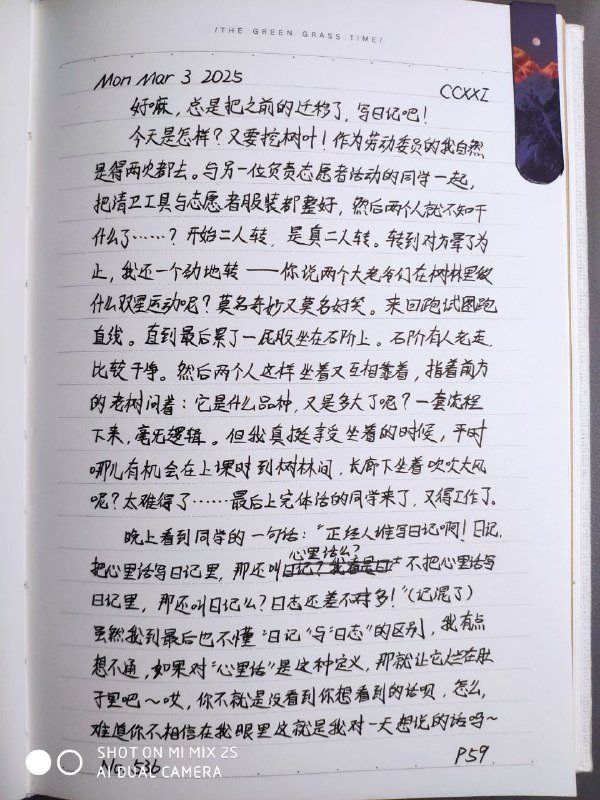 /THE GREEN GRASS TIME/
Mon Mar 3 2025
CCXXI
好嘛，总是把之前的迁移了，写日记吧！
今天是怎样？又要挖树叶！作为劳动委员的我自然
是得两次都去。与另一位负责志愿者活动的同学一起，
把清卫工具与志愿者服装都整好，然后两个人就不知干
什么了……？开始二人转，是真二人转。转到对方晕了为
止，我还一个劲地转——你说两个大老爷们在树林里做
什么双星运动呢？莫名奇妙又莫名好笑。来回跑试图跑
直线。直到最后累了一屁股坐在石阶上。石阶有人老走，
比较干净。然后两个人这样坐着又互相靠着，指着前方
的老树问着：它是什么品种，又是多大了呢？一套流程
下来，毫无逻辑。但我真挺享受坐着的时候，平时
哪儿有机会在上课时到树林间、长廊下坐着吹吹大风
呢？太难得了……最后上完体活的同学来了，又得工作了。
晚上看到同学的一句话：“正经人谁写日记啊！日记，
心里话么？
把心里话写日记里，那还叫日记？我看是日志 不把心里话写
日记里，那还叫日记么？日志还差不多！”（记混了）
虽然我到最后也不懂“日记”与“日志”的区别，我有点
想不通，如果对“心里话”是这种定义，那就让它烂在肚
子里吧～哎，你不就是没看到你想看到的话呗，怎么，
难道你不相信在我眼里这就是我对一天想说的话吗～
No. 536
P59.
SHOT ON MI MIX 2S
AI DUAL CAMERA